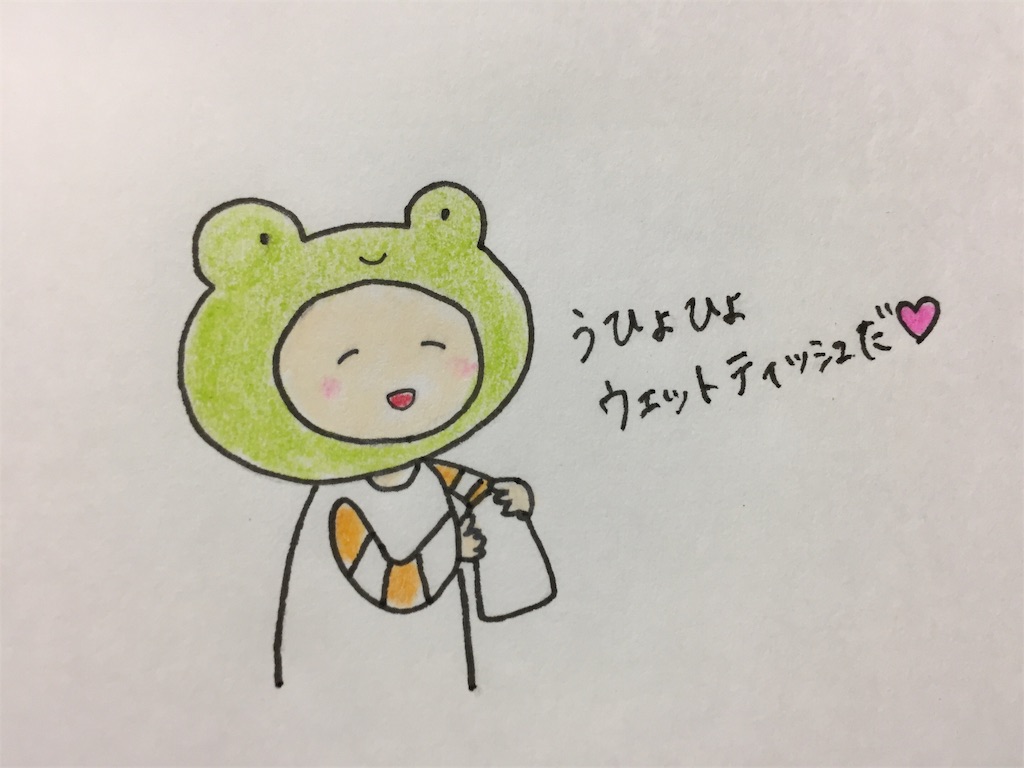 うひょひょ
ウェットティッシュだ♥